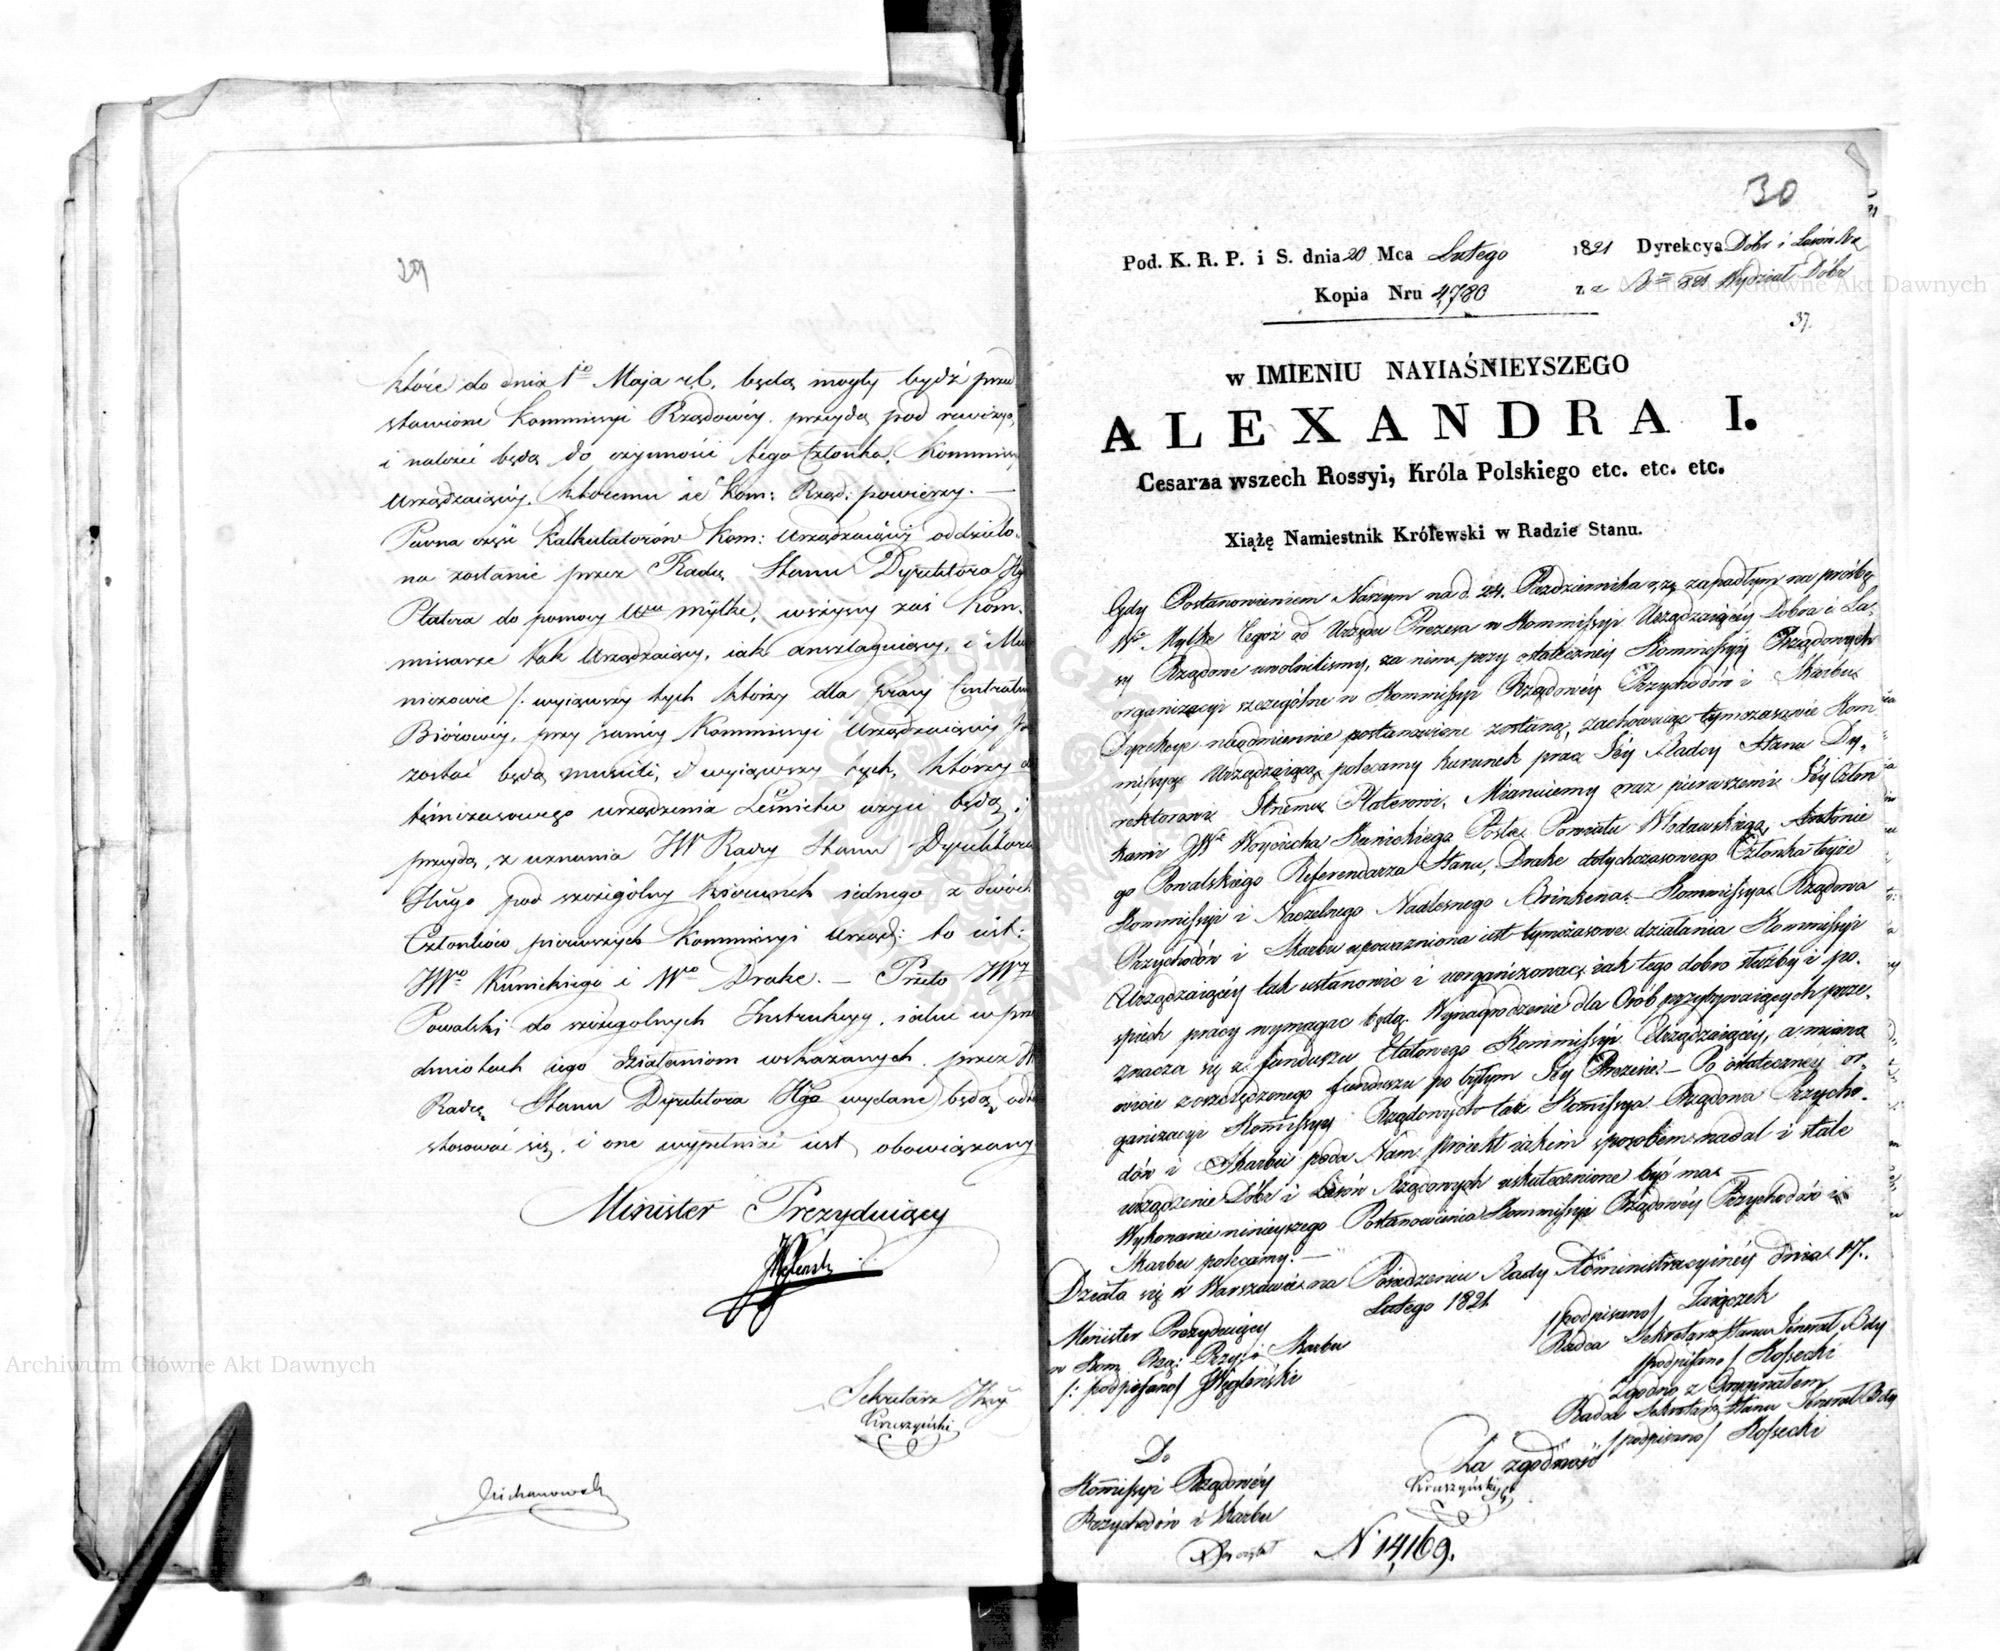 29
które do dnia 1go Maja r.b. będą mogły bydź przed
stawione Kommissyi Rządowéy, przeydą pod rewizyą,
i należeć będą do czynności tego Członka, Kommissyi
Urządzaiącéy, któremu ie Kom: Rząd: powierzy. —
Pewna część Kalkulatorów Kom: Urządzaiącéy oddzielo-
na zostanie przez Radcę Stanu Dyrektora Hr
Platera do pomocy Wu Mylke, wszyscy zaś Kom-
missarze tak Urządzaiący, iak anszlaguiący, i
miczowie /: wyiąwszy tych którzy dla pracy Centralnéy
Biórowéy, przy saméy Kommissyi Urządzaiącéy
zostać będą musieli, i wyiąwszy tych, którzy do
tymczasowego urządzenia Leśnictw użyci będą :/
przeydą, z uznania JW Radcy Stanu Dyrektora
Hugo pod szczególny kierunek iednego z dwóch
Członków pierwszych Kommissyi Urząd: to iest:
JWo Kunickiego i Wo Drake. — Przeto JWy
Powalski do szczególnych Instrukcyy, iakie w prze
dmiotach iego działaniom wskazanych, przez JW
Radcę Stanu Dyrektora Hgo wydane będą,
stosować się, i one wypełniać iest obowiązany
Minister Prezyduiący
Sekretarz Jlny
Kruszyński
30
Pod. K. R. P. i S. dnia 20 Mca Lutego 1821 Dyrekcya Dóbr i Lasów Rzą
Kopia Nru 4780 z Wydział Dóbr
37.
w IMIENIU NAYIAŚNIEYSZEGO
ALEXANDRA I.
Cesarza wszech Rossyi, Króla Polskiego etc. etc. etc.
Xiążę Namiestnik Królewski w Radzie Stanu.
Gdy Postanowieniem Naszym na d. 24. Października r.z. zapadłym na prośbę
Wo Mylke Tegoż od Urzędu Prezesa w Kommissyi Urządzaiącéy Dobra i La-
sy Rządowe uwolniliśmy, za nim przy ostatecznéy Kommissyy Rządowych
organizacyi szczególne w Kommissyi Rządowéy Przychodów i Skarbu
Dyrekcye nadmiennie postanowione zostaną, zachowuiąc tymczasowie Kom-
missyą Urządzaiącą polecamy kierunek prac Iéy Radcy Stanu Dy-
rektorowi Hrmu Platerowi. Mianuiemy oraz pierwszemi Iéy Człon
kami JWo Woyciecha Kunickiego Posła Powiatu Włodawskiego, Antonie
go Powalskiego Referendarza Stanu, Drake dotychczasowego Członka teyże
Kommissyi i Naczelnego Nadleśnego Brinkena. — Kommissya Rządowa
Przychodów i Skarbu upoważniona iest tymczasowe działania Kommissyi
Urządzaiącéy tak ustanowić i uorganizować, iak tego dobro służby i po-
spiech pracy wymagać będą. Wynagrodzenie dla Osób przybywaiących prze-
znacza się z funduszu Etatowego Kommissyi Urządzaiącéy, a miano
wicie zoszczędzonego funduszu po byłym Iéy Prezesie. — Po ostateczney or
ganizacyi Kommissyy Rządowych taż Kommissya Rządowa Przycho-
dów i Skarbu poda Nam proiekt iakim sposobem nadal i stale
urządzenie Dóbr i Lasów Rządowych uskutecznione być ma. —
Wykonanie ninieyszego Postanowienia Kommissyi Rządowéy Przychodów i
Skarbu polecamy. —
Działo się w Warszawie na Posiedzeniu Rady Administracyinéy dnia 17.
Lutego 1821
Minister Prezyduiący
w Kom. Rzą: Przy: i Skarbu
/: podpisano/ JWęgleński
/podpisano/ Zaiączek
Radca Sekretarz Stanu Jenerał Bdy
/podpisano/ Kossecki
Zgodno z Oryginałem
Radca Sekretarz Stanu Jenerał Bdy
/podpisano/ Kossecki
Za zgodność
Kruszyński
Do
Kommissyi Rządowéy
Przychodów i Skarbu
N 14,169.
Archiwum Główne Akt Dawnych
Archiwum Główne Akt Dawnych